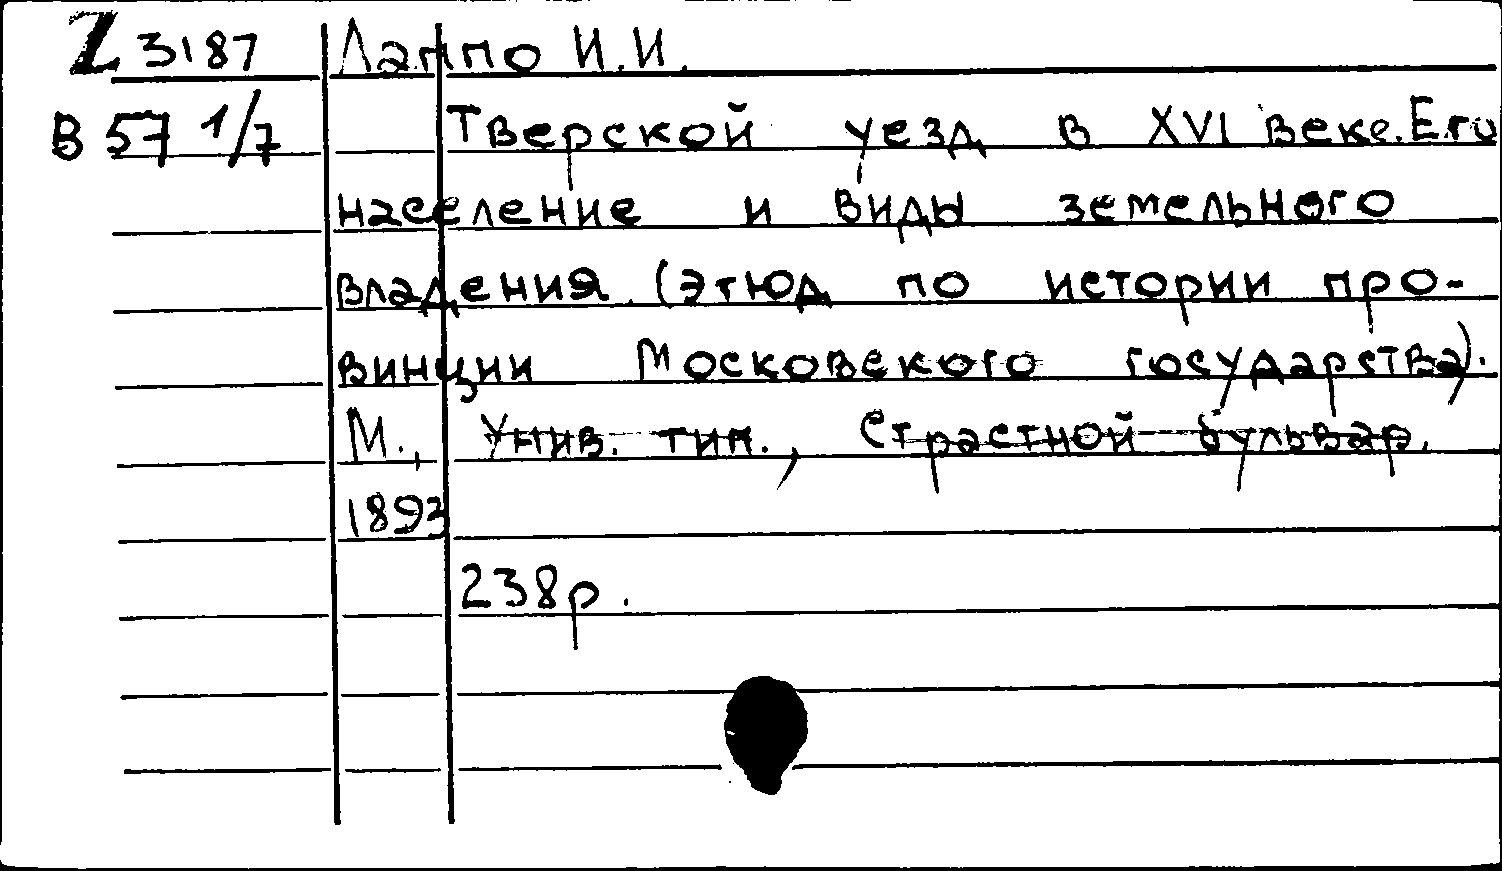 Z 3187 Лаппо И.И.
В 57 1/7 Тверской уезд в XVI веке. Его
население и виды земельного
владения. (этюд по истории про-
винции Московского государства).
М., Унив. тип., Страстной бульвар.
1893
238р.